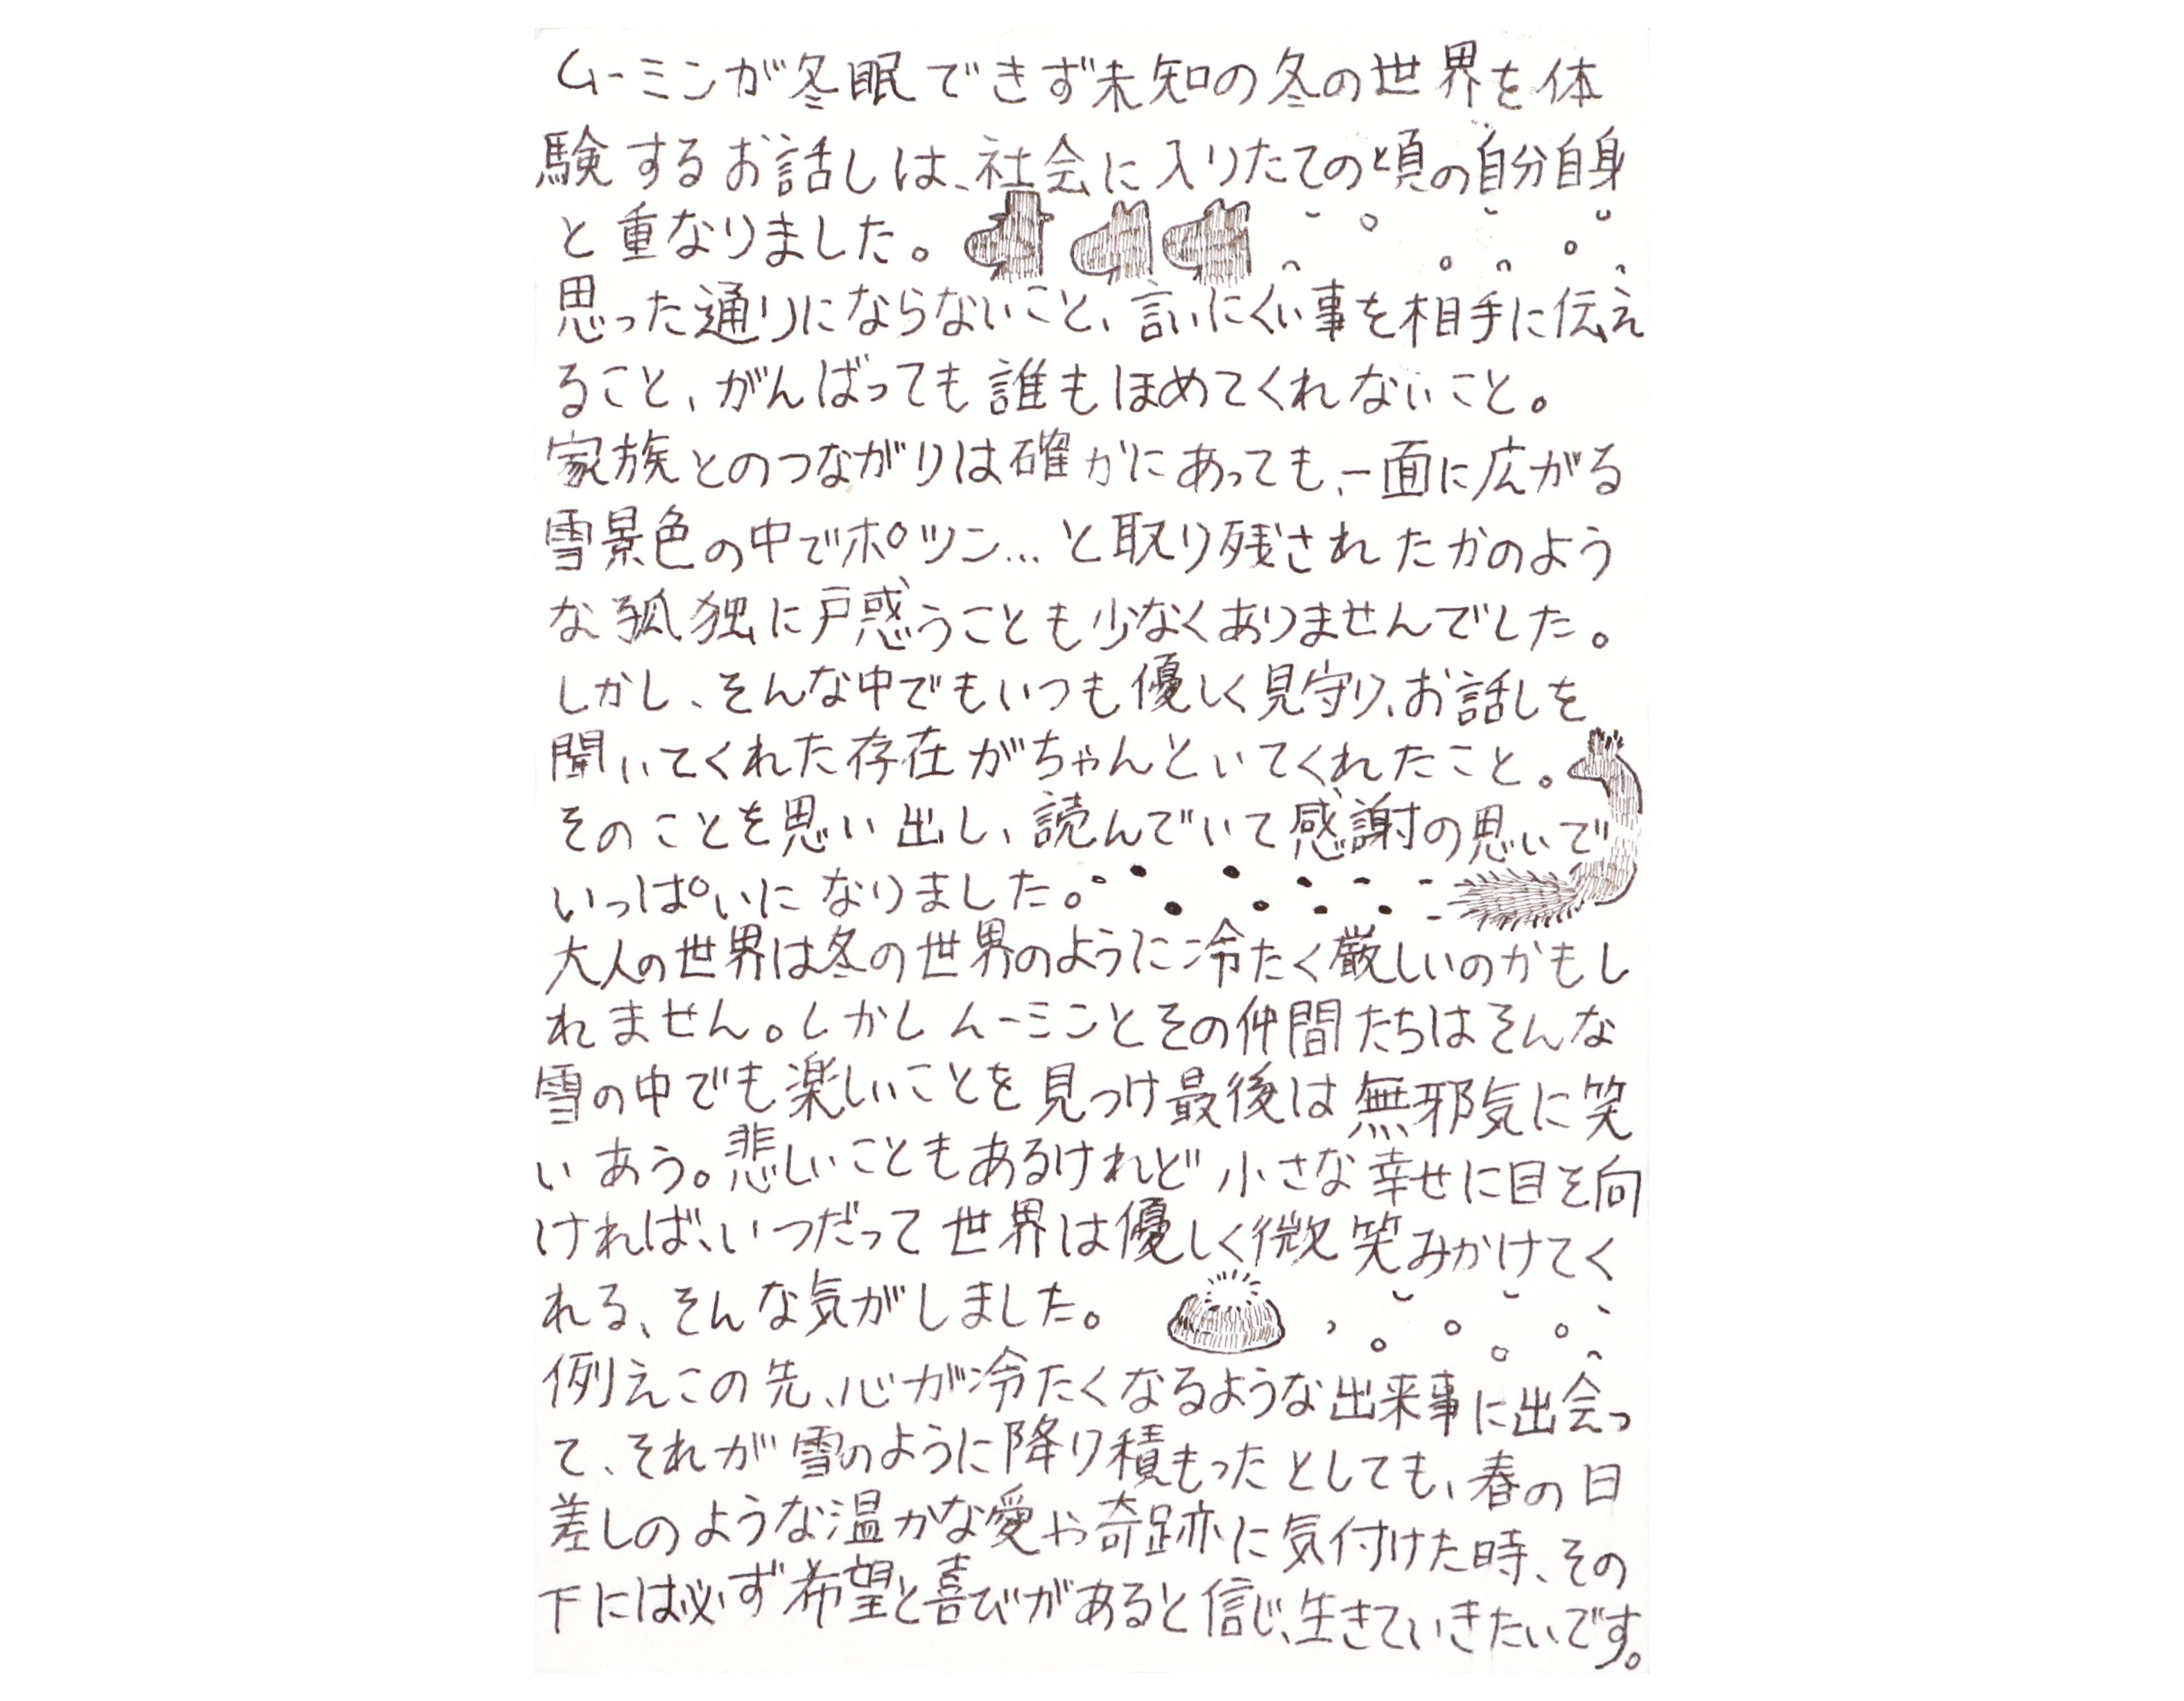 ムーミンが冬眠できず未知の冬の世界を体
験するお話しは、社会に入りたての頃の自分自身
と重なりました。
思った通りにならないこと、言いにくい事を相手に伝え
ること、がんばっても誰もほめてくれないこと。
家族とのつながりは確かにあっても、一面に広がる
雪景色の中でポツン…と取り残されたかのよう
な孤独に戸惑うことも少なくありませんでした。
しかし、そんな中でもいつも優しく見守り、お話しを
聞いてくれた存在がちゃんといてくれたこと。
そのことを思い出し、読んでいて感謝の思いで
いっぱいになりました。
大人の世界は冬の世界のように冷たく厳しいのかもし
れません。しかしムーミンとその仲間たちはそんな
雪の中でも楽しいことを見つけ最後は無邪気に笑
いあう。悲しいこともあるけれど小さな幸せに目を向
ければ、いつだって世界は優しく微笑みかけてく
れる、そんな気がしました。
例えこの先、心が冷たくなるような出来事に出会っ
て、それが雪のように降り積もったとしても、春の日
差しのような温かな愛や奇跡に気付けた時、その
下には必ず希望と喜びがあると信じ、生きていきたいです。